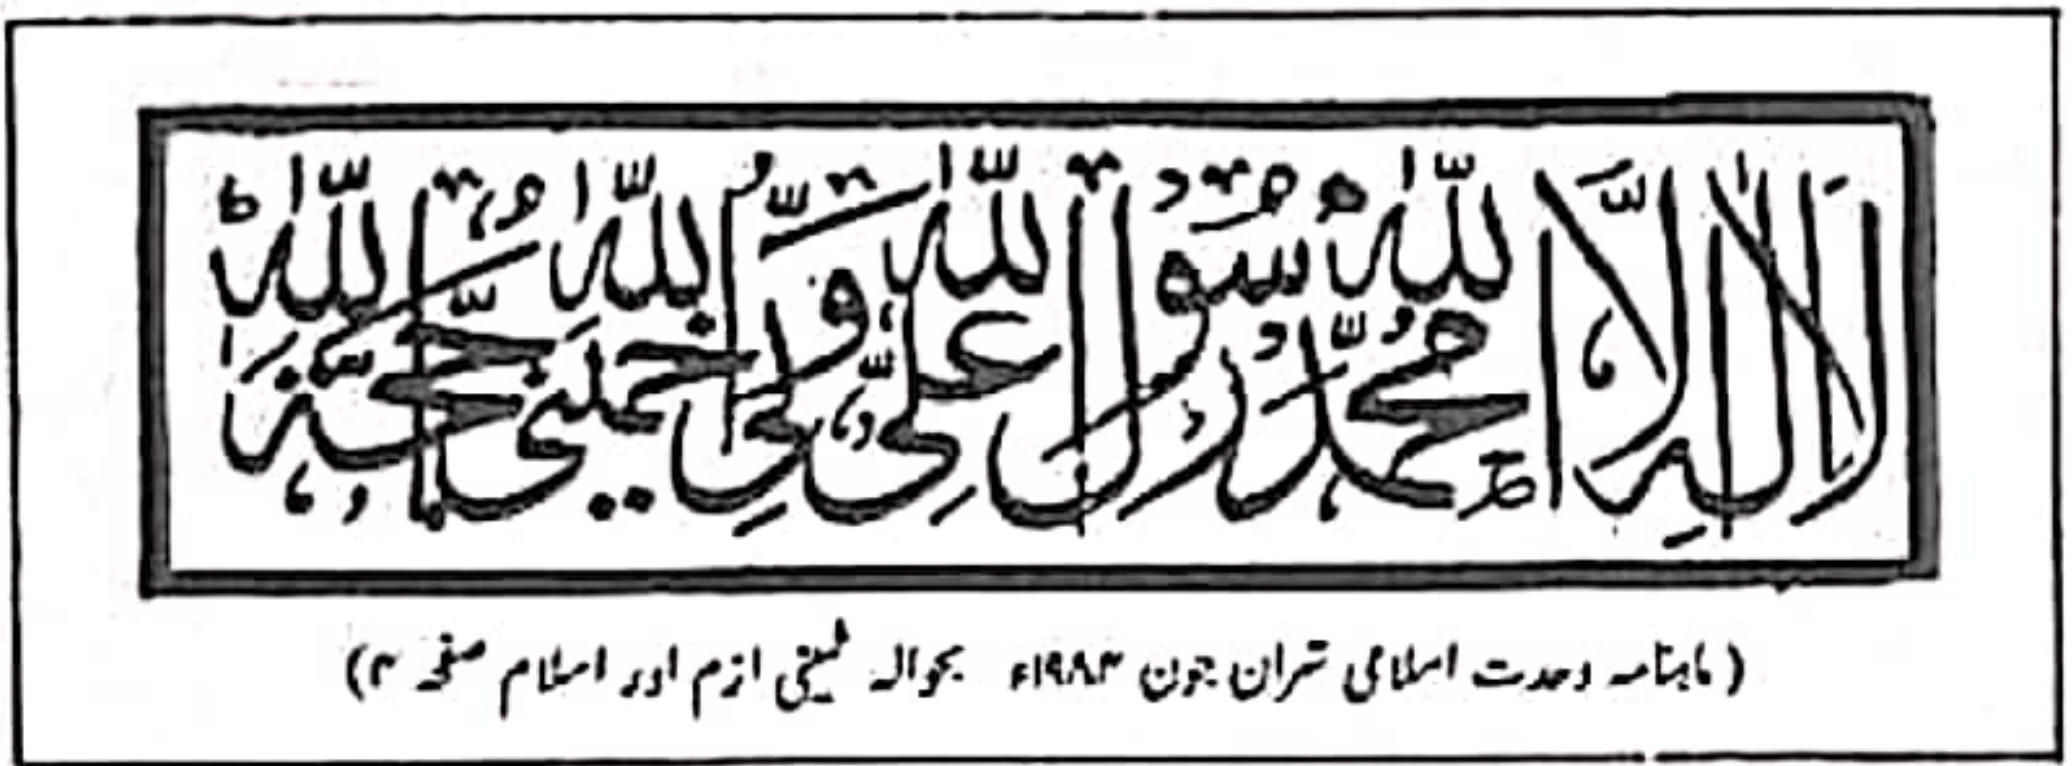 لَا إِلٰهَ إِلَّا اللّٰهُ مُحَمَّدٌ رَّسُوْلُ اللّٰهِ عَلِيٌّ وَّلِيُّ اللّٰهِ خمینی حُجَّةُ اللّٰهِ ط
(ماہنامہ وحدت اسلامی تہران جون ۱۹۸۴ء بحوالہ خمینی ازم اور اسلام صفحہ ۳)